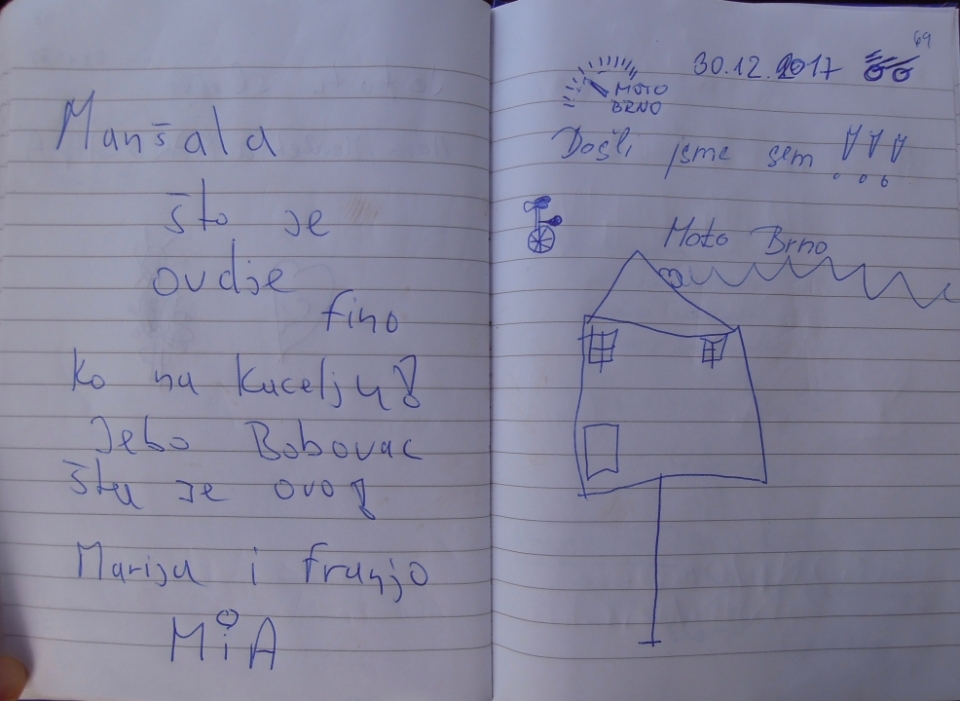 Manšala
što je
ovdje
fino
ko na Kucelju!
Jebo Bobovac
šta je ovo!
Marija i Franjo
MiA
69
30.12.2017
MOTO
BRNO
Došli jsme sem !!!
Moto Brno